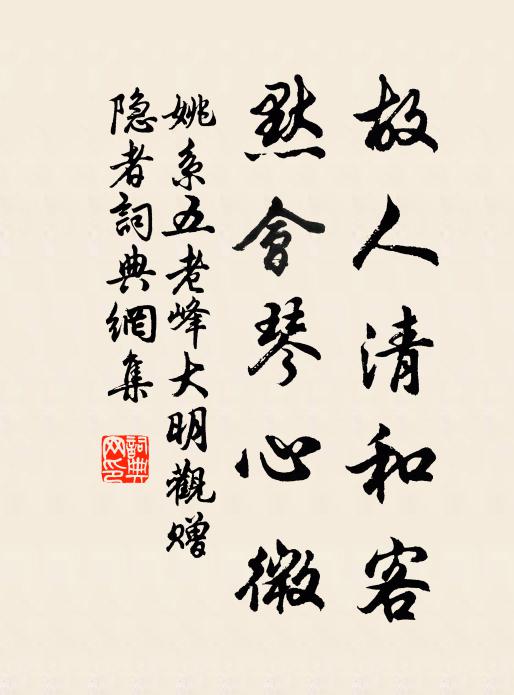 故人清和客
默會琴心微
姚系五老峰大明觀赠
隐者詞典網集
詞典网印